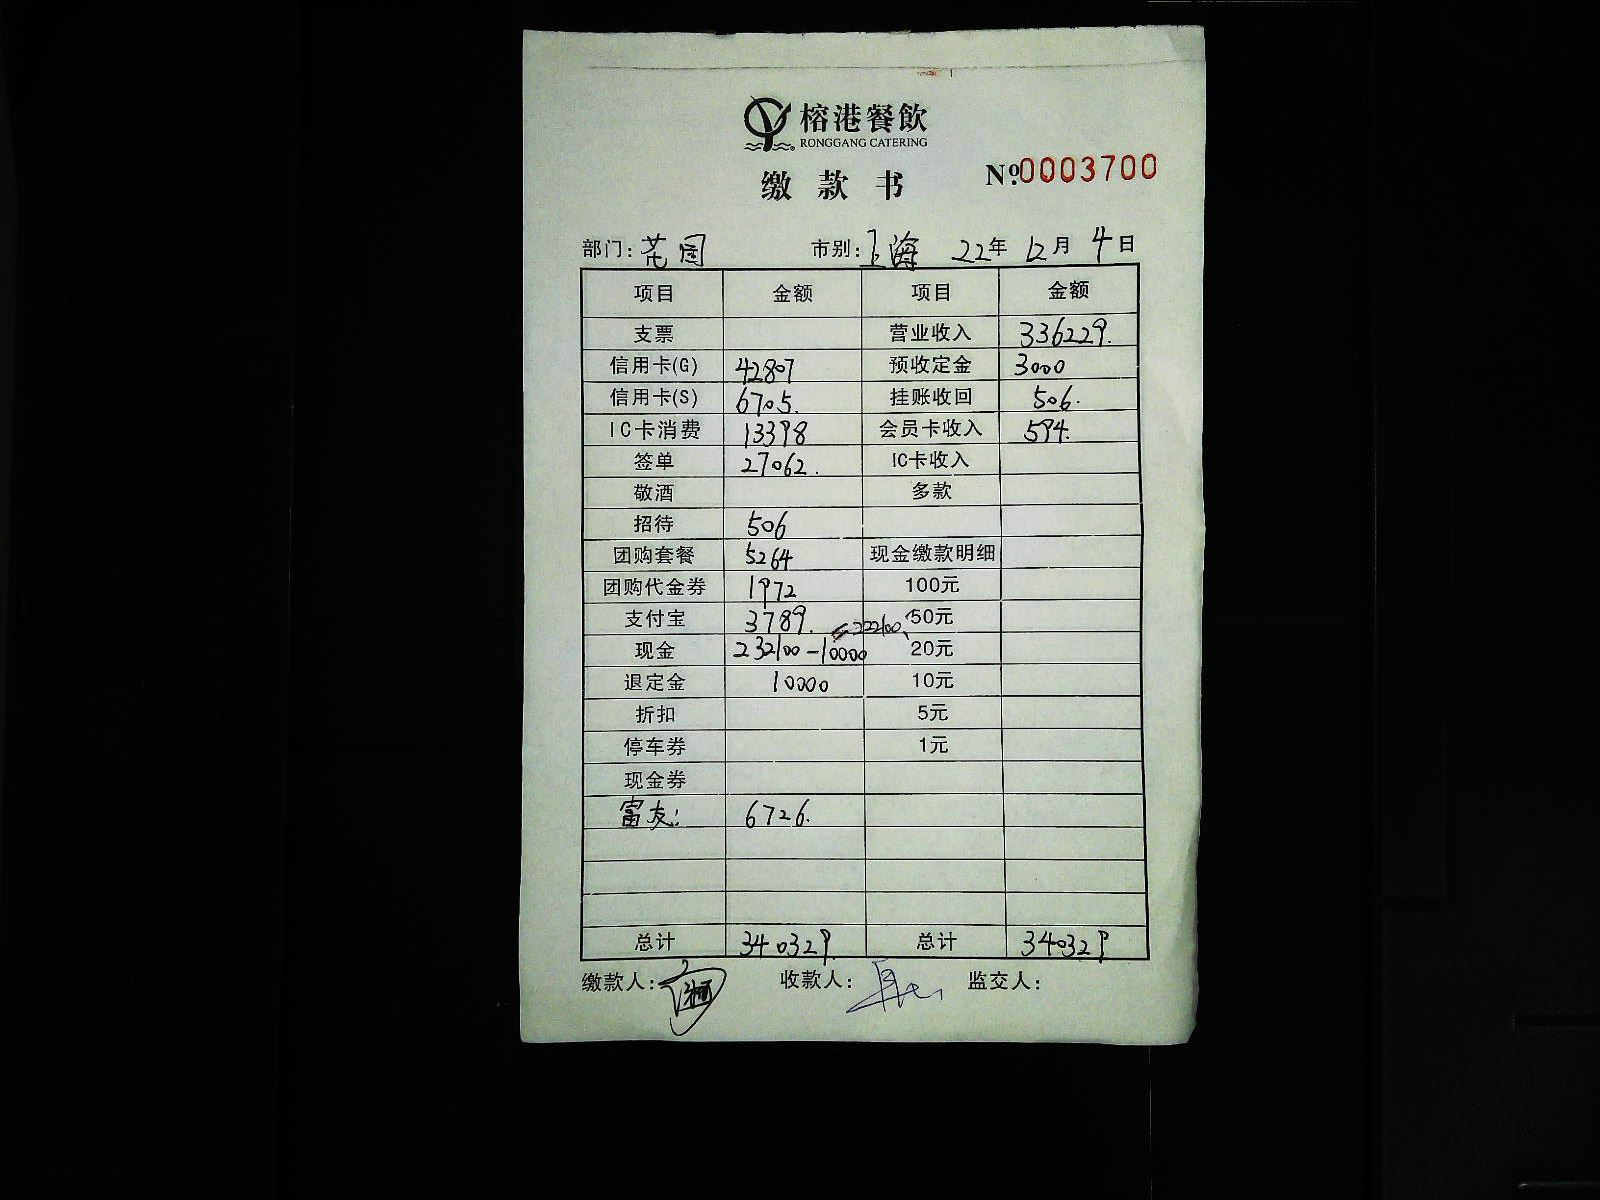 榕港餐飲
RONGGANG CATERING
缴款书 Nº.0003700
部门: 花园 市别: 上海 22年 12月 4日
项目 金额 项目 金额
支票 营业收入 336229.
信用卡(G) 42807 预收定金 3000
信用卡(S) 6705. 挂账收回 506.
IC卡消费 13398 会员卡收入 594.
签单 27062. IC卡收入
敬酒 多款
招待 506
团购套餐 5264 现金缴款明细
团购代金券 1972 100元
支付宝 3789. =222100 50元
现金 232100-10000 20元
退定金 10000 10元
折扣 5元
停车券 1元
现金券
富友: 6726.
总计 340329. 总计 340329
缴款人: 收款人: 监交人: